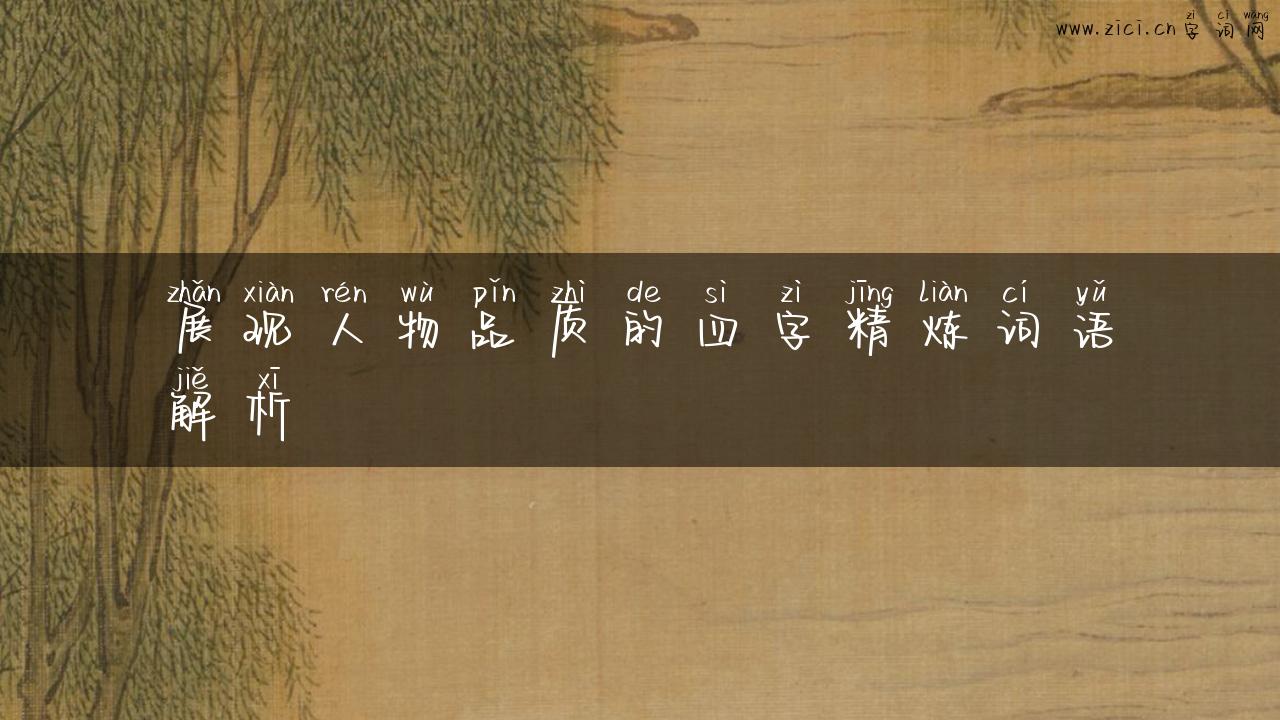 zì cí wǎng
www.zici.cn字词网
zhǎn xiàn rén wù pǐn zhì de sì zì jīng liàn cí yǔ
展现人物品质的四字精炼词语
jiě xī
解析